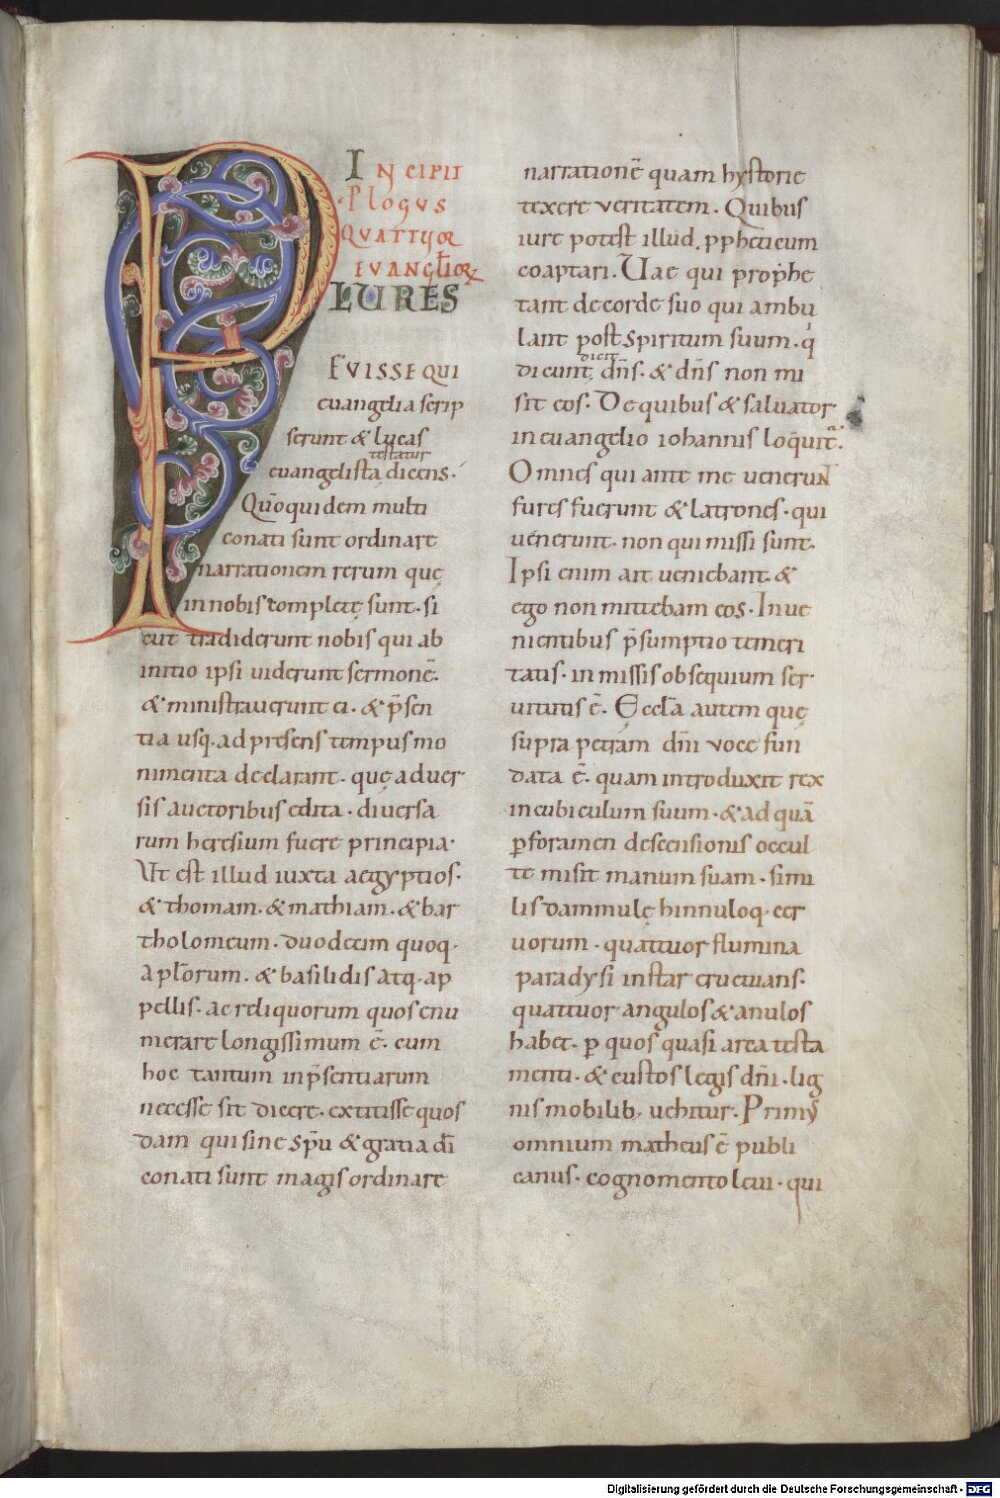 INCIPIT
PLOGUS
QVATTUOR
EVANGL̅IORꝜ
PLURES
FVISSE QUI
euangelia scrip
serunt & lucas
testatur
euangelista dicens.
Qūo quidem multi
conati sunt ordinare
narrationem rerum quę
in nobis complete̜ sunt. si
cut tradiderunt nobis qui ab
initio ipsi uiderunt sermonē.
& ministrauerunt ei. & p̄sen
tia usq. ad presens tempus mo
nimenta declarant. quę aduer
sis auctoribus edita. diuersa
rum heresium fuere principia.
Ut est illud iuxta aegyptios.
& thomam. & mathiam. & bar
tholomeum. duodecim quoq.
apl̅orum. & basilidis atq. ap
pellis. ac reliquorum quos enu
merare longissimum ē. cum
hoc tantum inp̄sentiarum
necesse sit dicere. extitisse quos
dam qui sine sp̅u & gratia dī
conati sunt magis ordinare
narrationē quam hystorie
texere ueritatem. Quibus
iure potest illud ppheticum
coaptari. Uae qui prophe
tant de corde suo qui ambu
lant post spiritum suum. q
dicit
dicunt, dn̅s. & dn̅s non mi
sit eos. De quibus & saluator
in euangelio iohannis loquitᷓ.
Omnes qui ante me uenerunt
fures fuerunt & latrones. qui
uenerunt. non qui missi sunt.
Ipsi enim ait ueniebant. &
ego non mittebam eos. In ue
nientibus p̄sumptio temeri
tatis. in missis obsequium ser
uitutis ē. Eccl̅a autem quę
supra petram dn̅i uoce fun
data ē. quam introduxit rex
in cubiculum suum. & ad quā
ꝑ foramen descensionis occul
te misit manum suam. simi
lis dammulę hinnuloq. cer
uorum. quattuor flumina
paradysi instar eructuans.
quattuor angulos & anulos
habet. ꝑ quos quasi arca testa
menti. & custos legis dn̅i. lig
nis mobilib, uehitur. Primꝰ
omnium matheus ē publi
canus. cognomento leui. qui
Digitalisierung gefördert durch die Deutsche Forschungsgemeinschaft - DFG